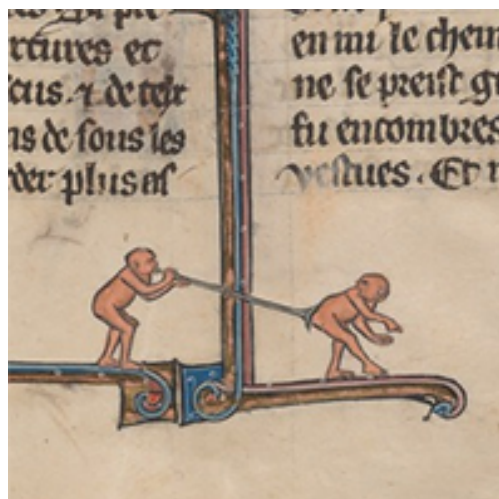 rtures et
cus. ⁊ de
ns de sous les
rder plus as
en mi le chem
ne se preist gi
fu encombres
vestues. Et